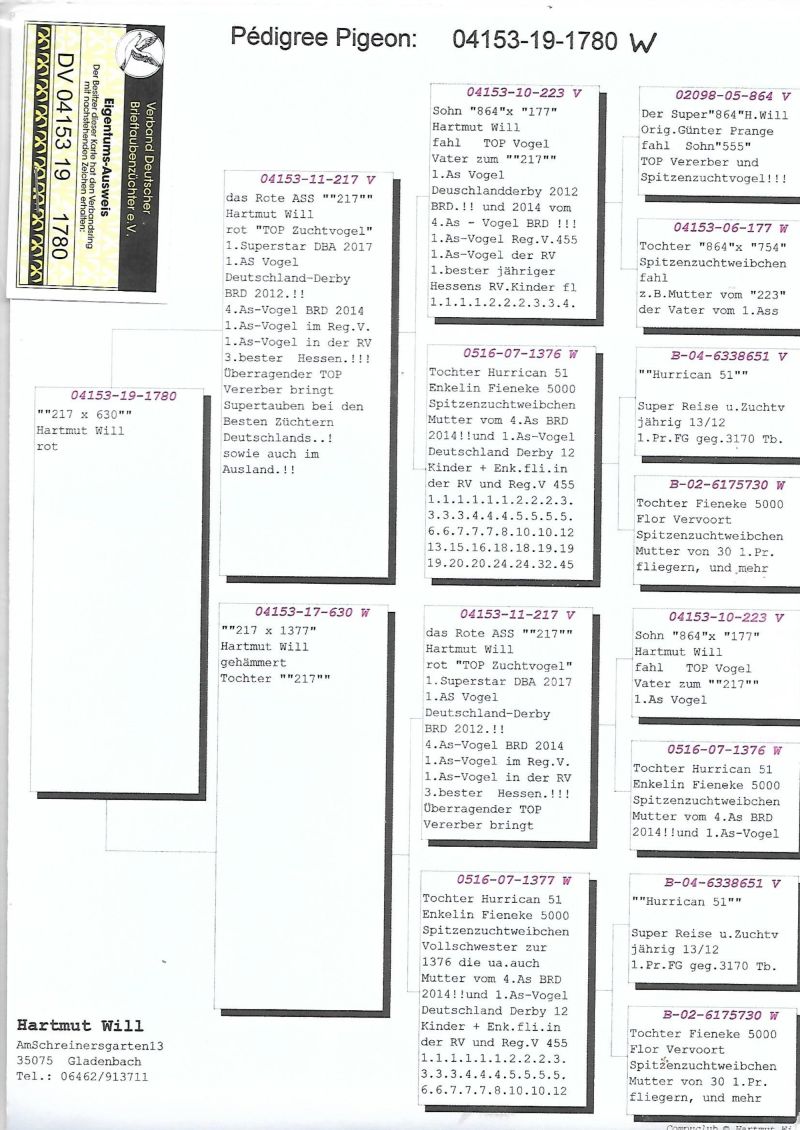 Pédigree Pigeon: 04153-19-1780 W
Verband Deutscher
Brieftaubenzüchter e.V.
Eigentums-Ausweis
Der Besitzer dieser Karte hat den Verbandsring
mit nachstehenden Zeichen erhalten:
DV 04153 19 1780
04153-19-1780
""217 x 630""
Hartmut Will
rot
04153-11-217 V
das Rote ASS ""217""
Hartmut Will
rot "TOP Zuchtvogel"
1.Superstar DBA 2017
1.AS Vogel
Deutschland-Derby
BRD 2012.!!
4.As-Vogel BRD 2014
1.As-Vogel im Reg.V.
1.As-Vogel in der RV
3.bester Hessen.!!!
Überragender TOP
Vererber bringt
Supertauben bei den
Besten Züchtern
Deutschlands..!
sowie auch im
Ausland.!!
04153-17-630 W
""217 x 1377"
Hartmut Will
gehämmert
Tochter ""217""
04153-10-223 V
Sohn "864"x "177"
Hartmut Will
fahl TOP Vogel
Vater zum ""217""
1.As Vogel
Deuschlandderby 2012
BRD.!! und 2014 vom
4.As - Vogel BRD !!!
1.As-Vogel Reg.V.455
1.As-Vogel der RV
1.bester jähriger
Hessens RV.Kinder fl
1.1.1.1.2.2.2.3.3.4.
0516-07-1376 W
Tochter Hurrican 51
Enkelin Fieneke 5000
Spitzenzuchtweibchen
Mutter vom 4.As BRD
2014!!und 1.As-Vogel
Deutschland Derby 12
Kinder + Enk.fli.in
der RV und Reg.V 455
1.1.1.1.1.1.2.2.2.3.
3.3.3.4.4.4.5.5.5.5.
6.6.7.7.7.8.10.10.12
13.15.16.18.18.19.19
19.20.20.24.24.32.45
04153-11-217 V
das Rote ASS ""217""
Hartmut Will
rot "TOP Zuchtvogel"
1.Superstar DBA 2017
1.AS Vogel
Deutschland-Derby
BRD 2012.!!
4.As-Vogel BRD 2014
1.As-Vogel im Reg.V.
1.As-Vogel in der RV
3.bester Hessen.!!!
Überragender TOP
Vererber bringt
0516-07-1377 W
Tochter Hurrican 51
Enkelin Fieneke 5000
Spitzenzuchtweibchen
Vollschwester zur
1376 die ua.auch
Mutter vom 4.As BRD
2014!!und 1.As-Vogel
Deutschland Derby 12
Kinder + Enk.fli.in
der RV und Reg.V 455
1.1.1.1.1.1.2.2.2.3.
3.3.3.4.4.4.5.5.5.5.
6.6.7.7.7.8.10.10.12
02098-05-864 V
Der Super"864"H.Will
Orig.Günter Prange
fahl Sohn"555"
TOP Vererber und
Spitzenzuchtvogel!!!
04153-06-177 W
Tochter "864"x "754"
Spitzenzuchtweibchen
fahl
z.B.Mutter vom "223"
der Vater vom 1.Ass
B-04-6338651 V
""Hurrican 51""
Super Reise u.Zuchtv
jährig 13/12
1.Pr.FG geg.3170 Tb.
B-02-6175730 W
Tochter Fieneke 5000
Flor Vervoort
Spitzenzuchtweibchen
Mutter von 30 1.Pr.
fliegern, und mehr
04153-10-223 V
Sohn "864"x "177"
Hartmut Will
fahl TOP Vogel
Vater zum ""217""
1.As Vogel
0516-07-1376 W
Tochter Hurrican 51
Enkelin Fieneke 5000
Spitzenzuchtweibchen
Mutter vom 4.As BRD
2014!!und 1.As-Vogel
B-04-6338651 V
""Hurrican 51""
Super Reise u.Zuchtv
jährig 13/12
1.Pr.FG geg.3170 Tb.
B-02-6175730 W
Tochter Fieneke 5000
Flor Vervoort
Spitzenzuchtweibchen
Mutter von 30 1.Pr.
fliegern, und mehr
Hartmut Will
AmSchreinersgarten13
35075 Gladenbach
Tel.: 06462/913711
Compuclub © Hartmut